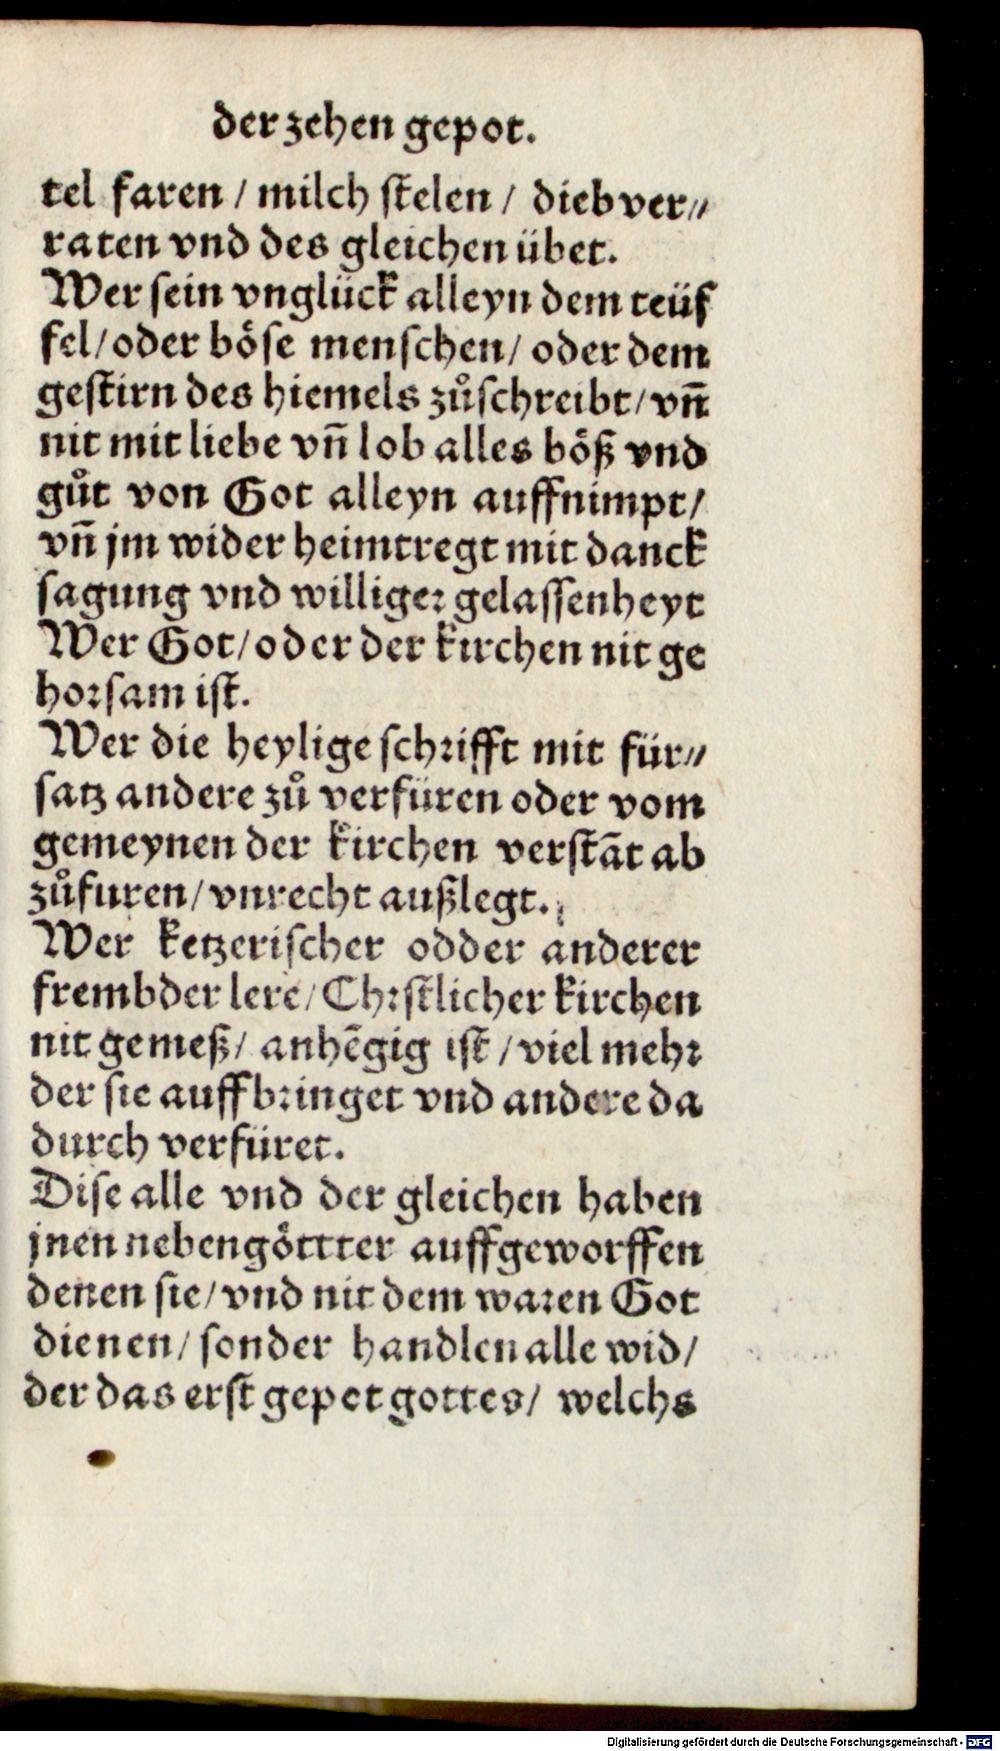 der zehen gepot.
tel faren / milch stelen / dieb ver⸗
raten vnd des gleichen übet.
Wer sein vnglück alleyn dem teüf
fel / oder böse menschen / oder dem
gestirn des hiemels zůschreibt / vñ
nit mit liebe vñ lob alles böß vnd
gůt von Got alleyn auffnimpt /
vñ jm wider heimtregt mit danck
sagung vnd williger gelassenheyt
Wer Got / oder der kirchen nit ge
horsam ist.
Wer die heylige schrifft mit für⸗
satz andere zů verfüren oder vom
gemeynen der kirchen verstāt ab
zůfuren / vnrecht außlegt.
Wer ketzerischer odder anderer
frembder lere / Chrstlicher kirchen
nit gemeß / anhēgig ist / viel mehr
der sie auffbringet vnd andere da
durch verfüret.
Dise alle vnd der gleichen haben
jnen nebengöttter auffgeworffen
denen sie / vnd nit dem waren Got
dienen / sonder handlen alle wid /
der das erst gepet gottes / welchs
Digitalisierung gefördert durch die Deutsche Forschungsgemeinschaft - DFG